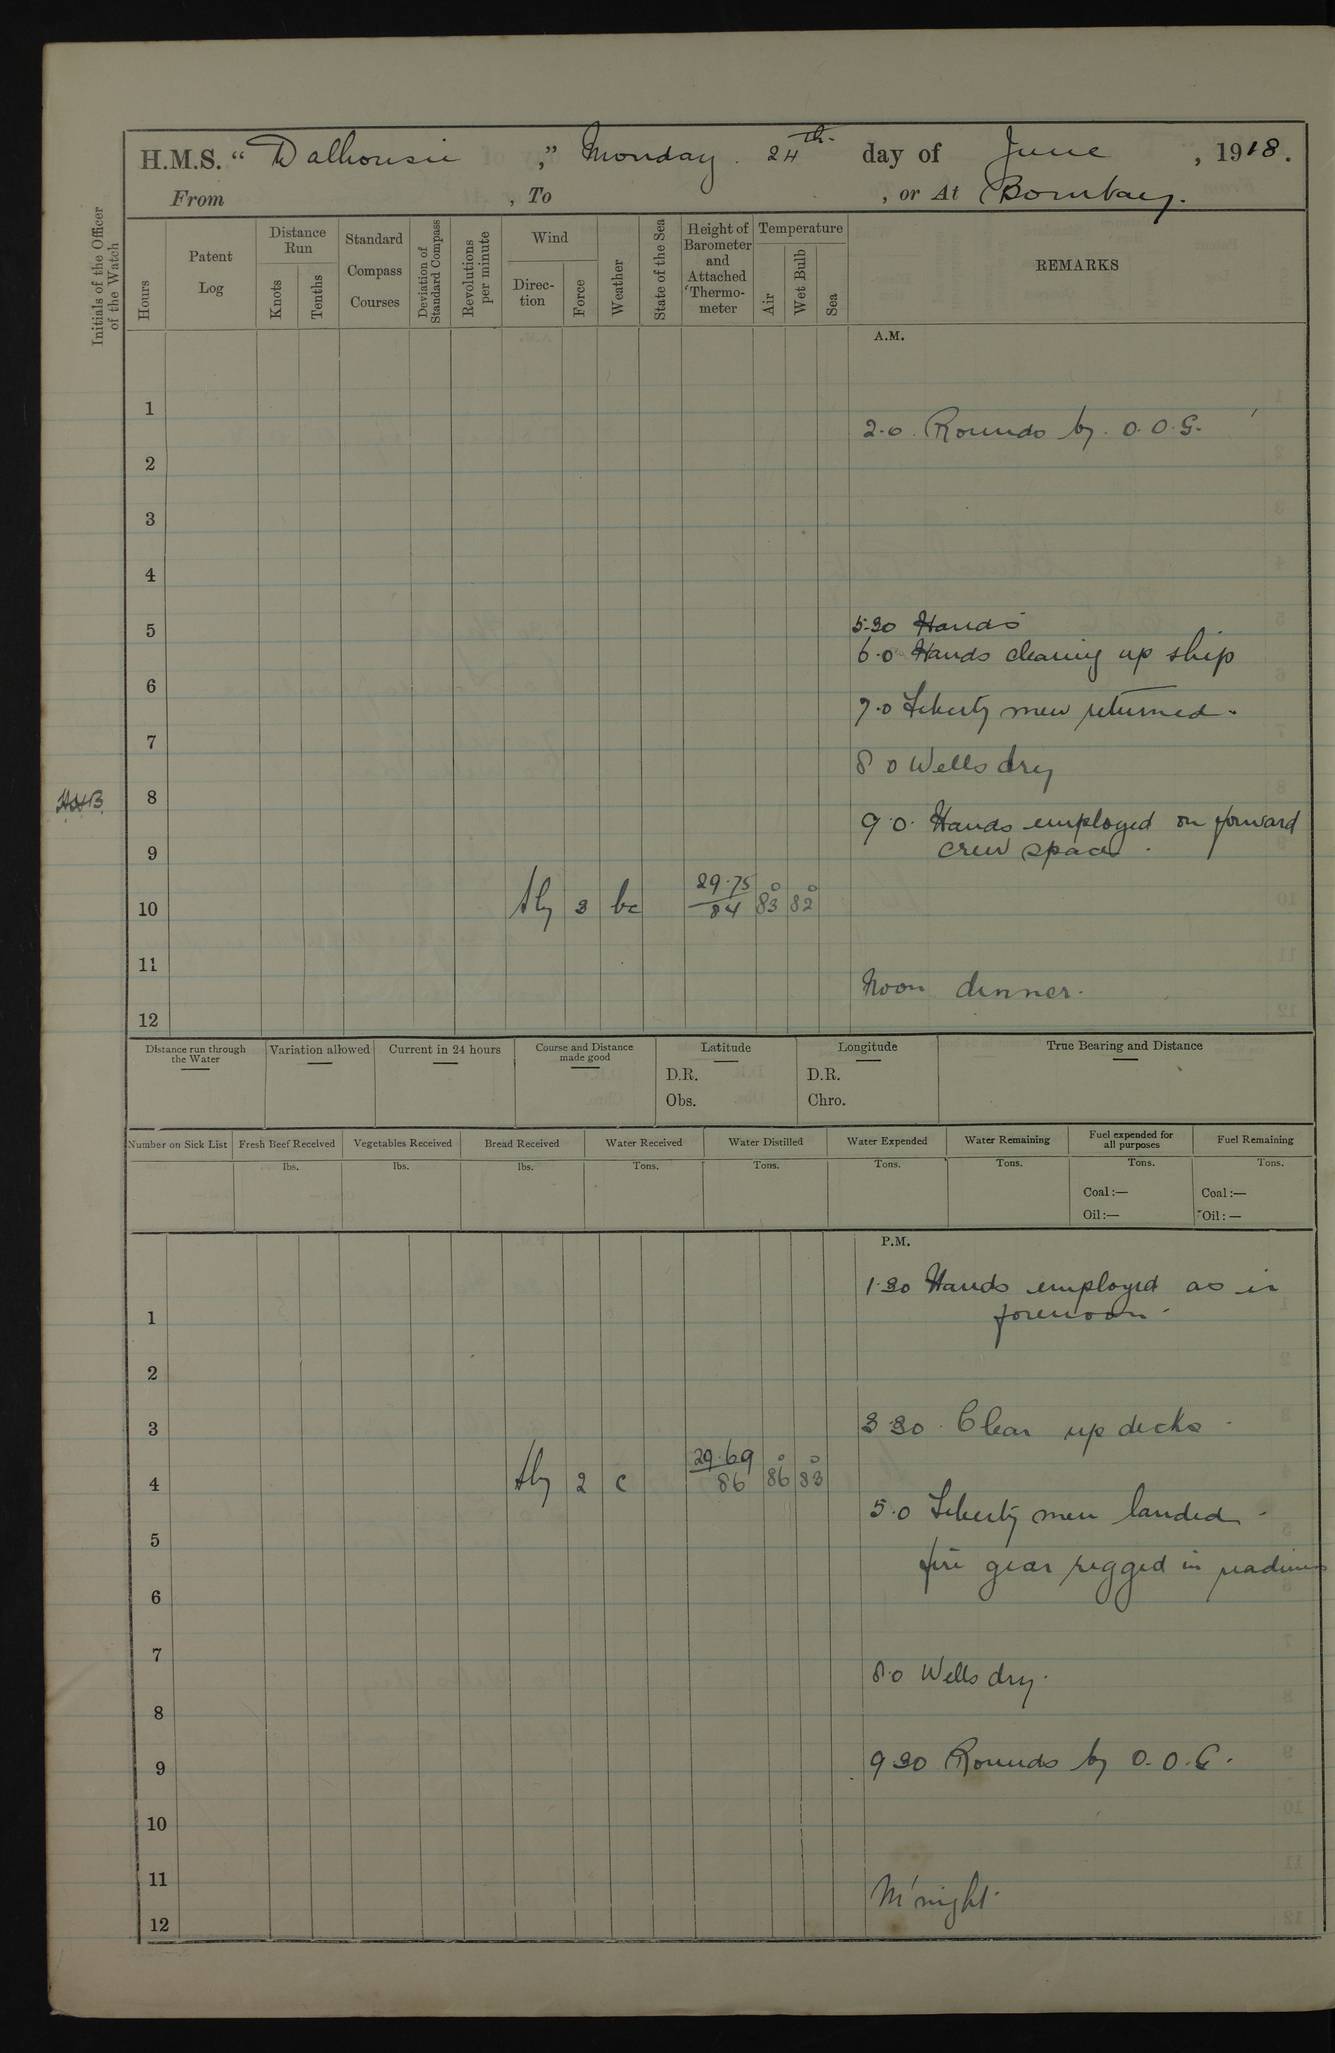 H.M.S. “ Dalhousie ,” Monday. 24th day of June , 1918.
From , To , or At Bombay.
Initials of the Officer of the Watch
Hours
Patent Log
Distance Run
Knots
Tenths
Standard Compass Courses
Deviation of Standard Compass
Revolutions per minute
Wind
Direction
Force
Weather
State of the Sea
Height of Barometer and Attached Thermometer
Temperature
Air
Wet Bulb
Sea
REMARKS
A.M.
1
2.0. Rounds by. O.O.G.
2
3
4
5
5.30 Hands
6.0 Hands cleaning up ship
6
7.0 Liberty men returned.
7
8 0 Wells dry
8
HHB
9.0. Hands employed on forward
crew spaces.
9
10 Sly 3 bc 29.75 / 84 83° 82°
11
Noon dinner.
12
Distance run through the Water
Variation allowed
Current in 24 hours
Course and Distance made good
Latitude
D.R.
Obs.
Longitude
D.R.
Chro.
True Bearing and Distance
Number on Sick List
Fresh Beef Received
lbs.
Vegetables Received
lbs.
Bread Received
lbs.
Water Received
Tons.
Water Distilled
Tons.
Water Expended
Tons.
Water Remaining
Tons.
Fuel expended for all purposes
Tons.
Coal:—
Oil:—
Fuel Remaining
Tons.
Coal:—
Oil:—
P.M.
1.30 Hands employed as in
forenoon.
1
2
3
3.30. Clear up decks.
4 Sly 2 c 29.69 / 86 86° 83°
5.0 Liberty men landed.
5
fire gear rigged in readiness
6
7
8.0 Wells dry.
8
9.30 Rounds by O.O.G.
9
10
11
M'night.
12